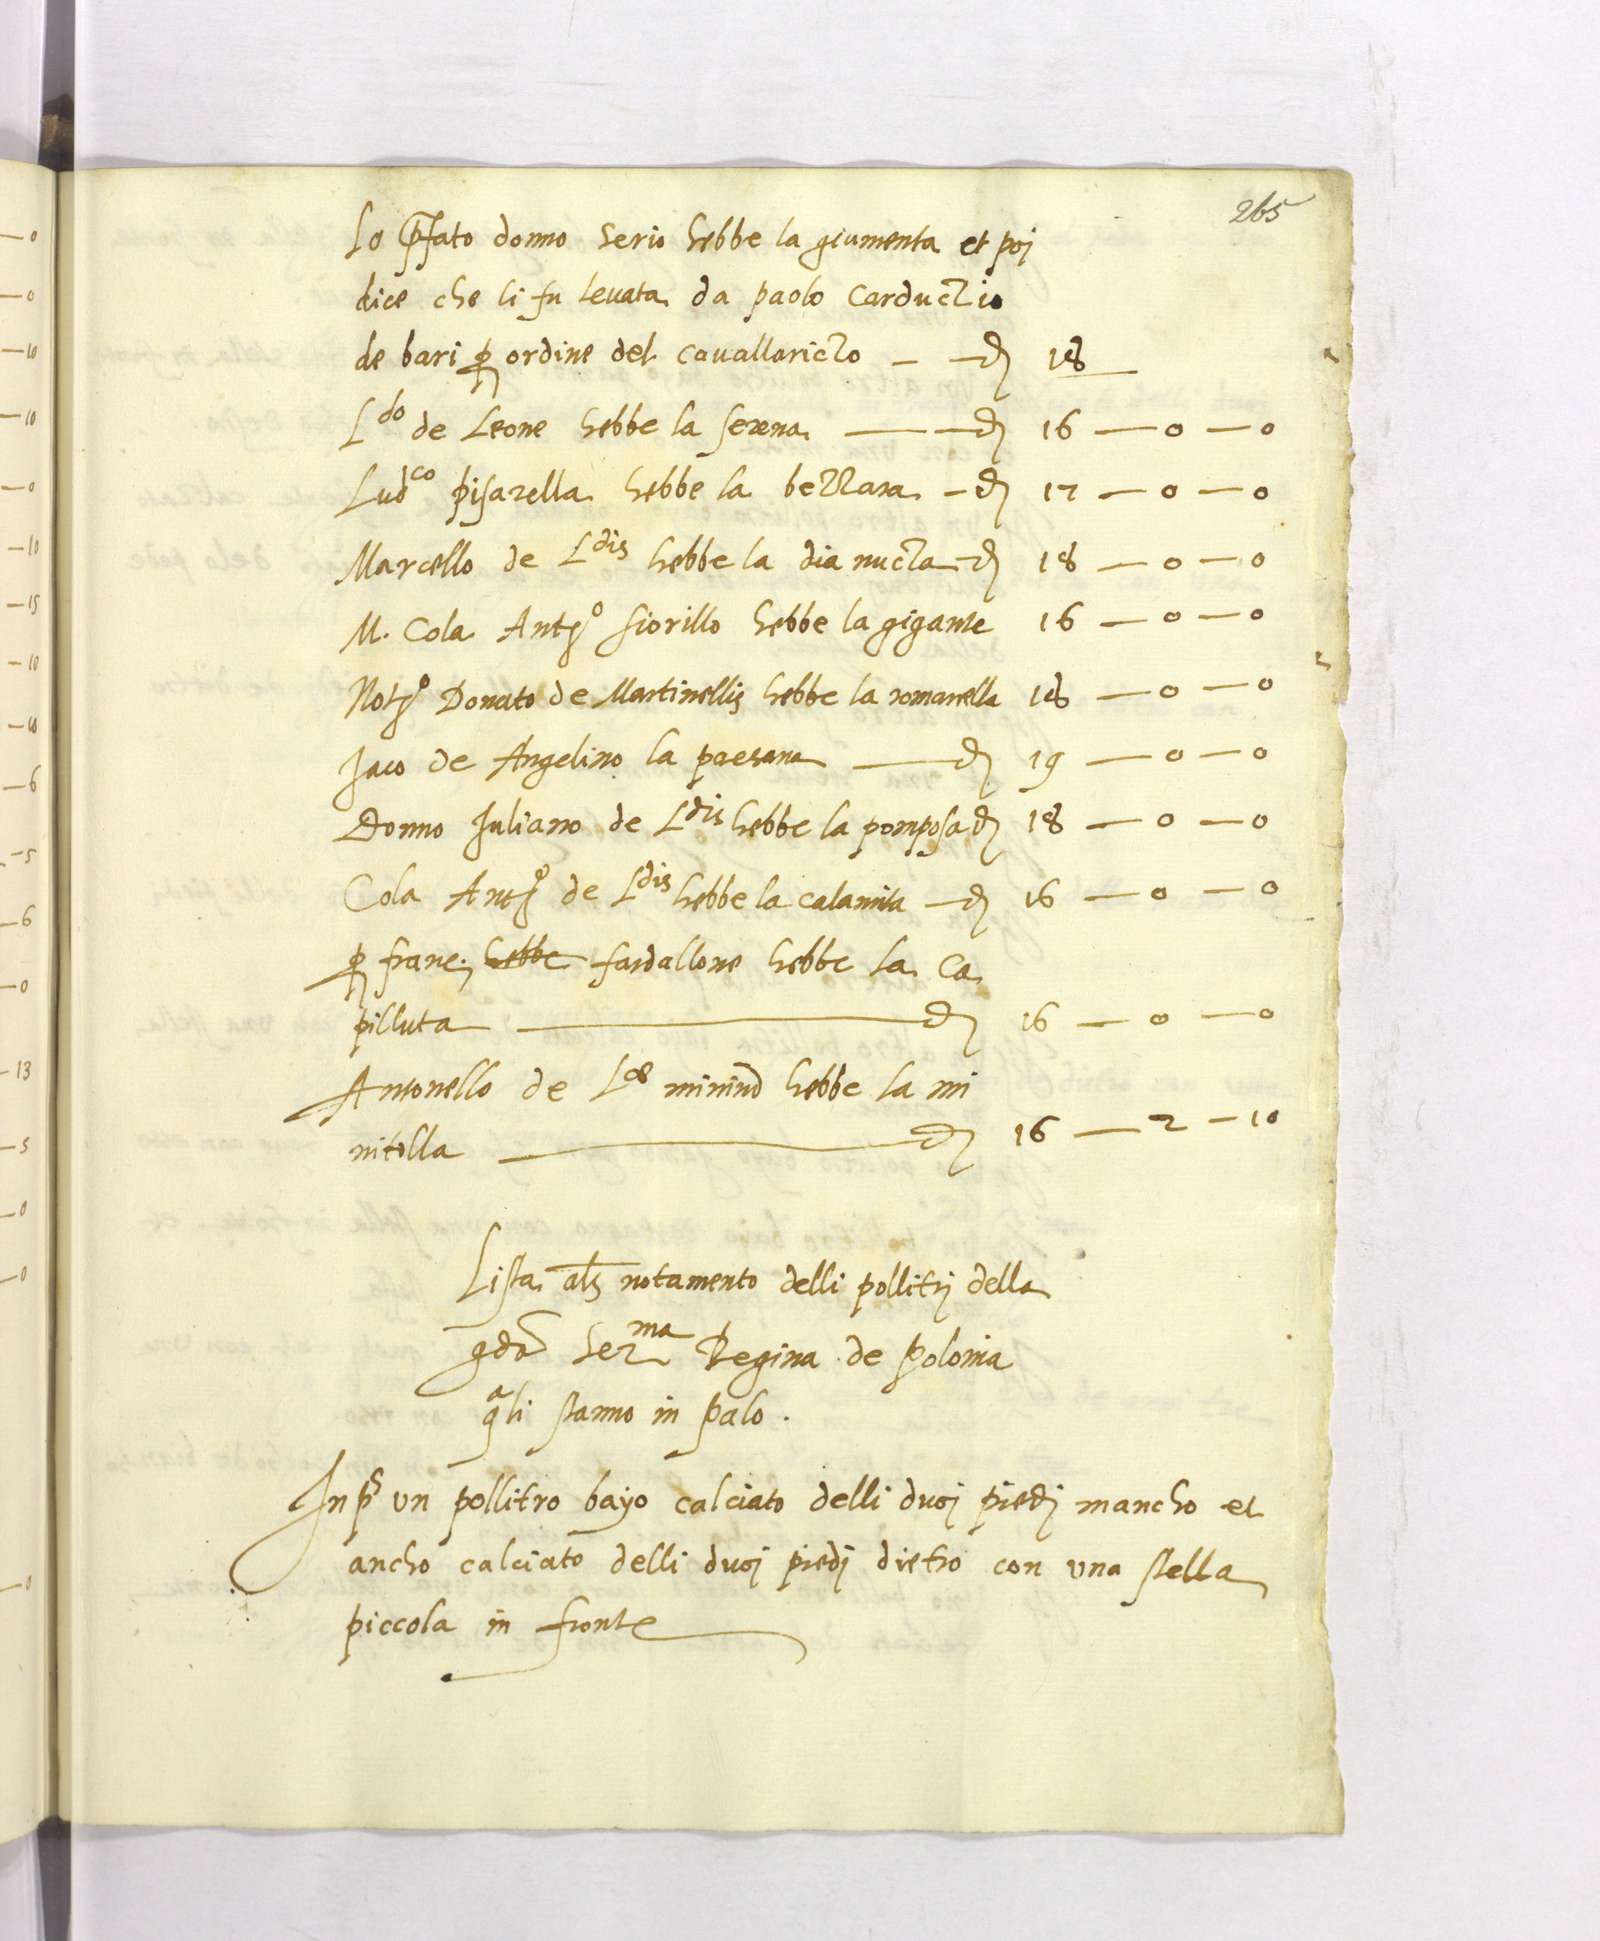 265
Lo p̄fato donno serio hebbe la giumenta et poi
dice che li fu levata da paolo Carductio
de bari ꝑ ordine del cavallaricto — — d 18
L^do de Leone hebbe la serena — — d 16 — 0 — 0
Lud^co pisarella hebbe la bezzara — d 17 — 0 — 0
Marcello de L^dis hebbe la dianucta — d 18 — 0 — 0
M. Cola Ant^o fiorillo hebbe la gigante 16 — 0 — 0
Not^o Donato de Martinellis hebbe la romanella 18 — 0 — 0
Jaco de Angelino la paesana — d 19 — 0 — 0
Donno Juliano de L^dis hebbe la pomposa d 18 — 0 — 0
Cola Ant^o de L^dis hebbe la calamita — d 16 — 0 — 0
ꝑ franc. hebbe fardallone hebbe la Ca
pilluta — d 16 — 0 — 0
Antonello de hebbe la mi
nitolla — d 16 — 2 — 10
Lista als notamento delli pollitrj della
qdā Ser^ma Regina de Polonia
q^ali stanno in Palo.
In p^s un pollitro bayo calciato delli duoj piedj mancho et
ancho calciato delli duoj piedj dietro con una stella
piccola in fronte
0
0
10
10
0
10
15
10
10
6
5
6
0
13
5
0
0
0